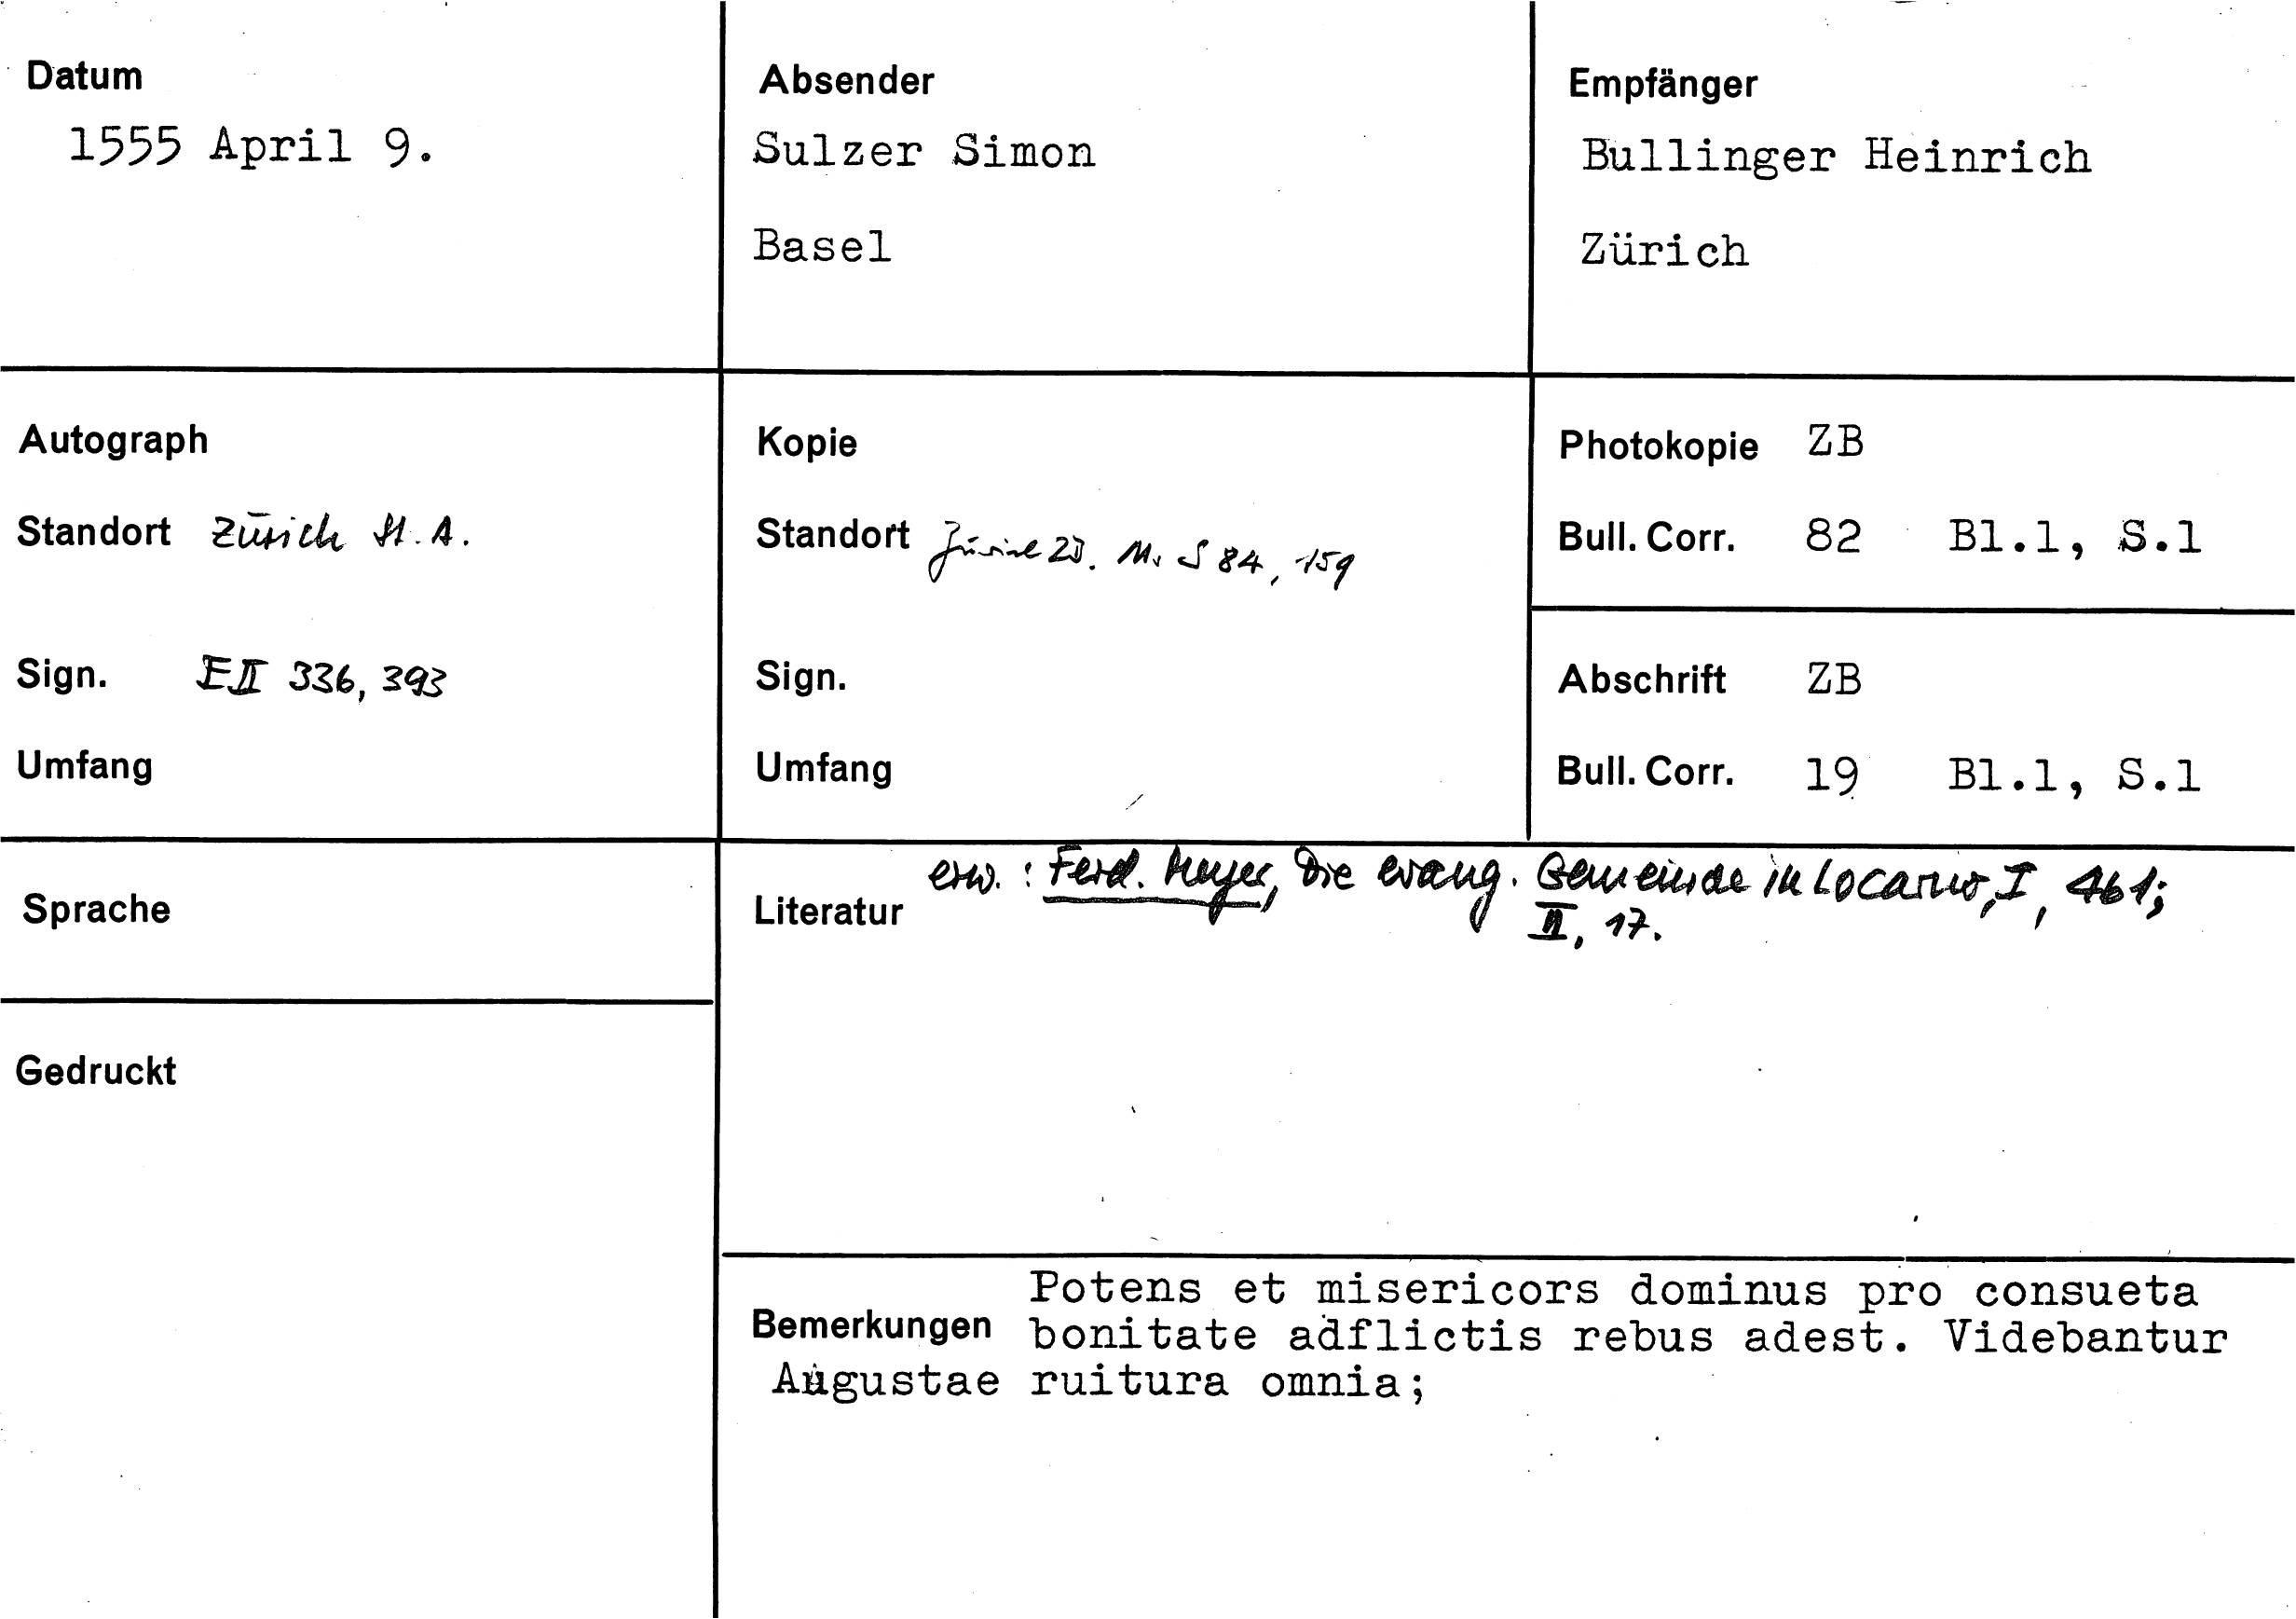 Datum
1555 April 9.
Absender
Sulzer Simon
Basel
Empfänger
Bullinger Heinrich
Zürich
Autograph
Standort Zürich St. A.
Sign. E II 336, 393
Umfang
Kopie
Standort Zürich ZB. Ms S 84, 159
Sign.
Umfang
Photokopie ZB
Bull. Corr. 82 Bl.1, S.1
Abschrift ZB
Bull. Corr. 19 Bl.1, S.1
Sprache
Gedruckt
Literatur erw.: Ferd. Meyer, Die evang. Gemeinde in Locarno, I, 461;
II, 17.
Bemerkungen Potens et misericors dominus pro consueta
bonitate adflictis rebus adest. Videbantur
Augustae ruitura omnia;